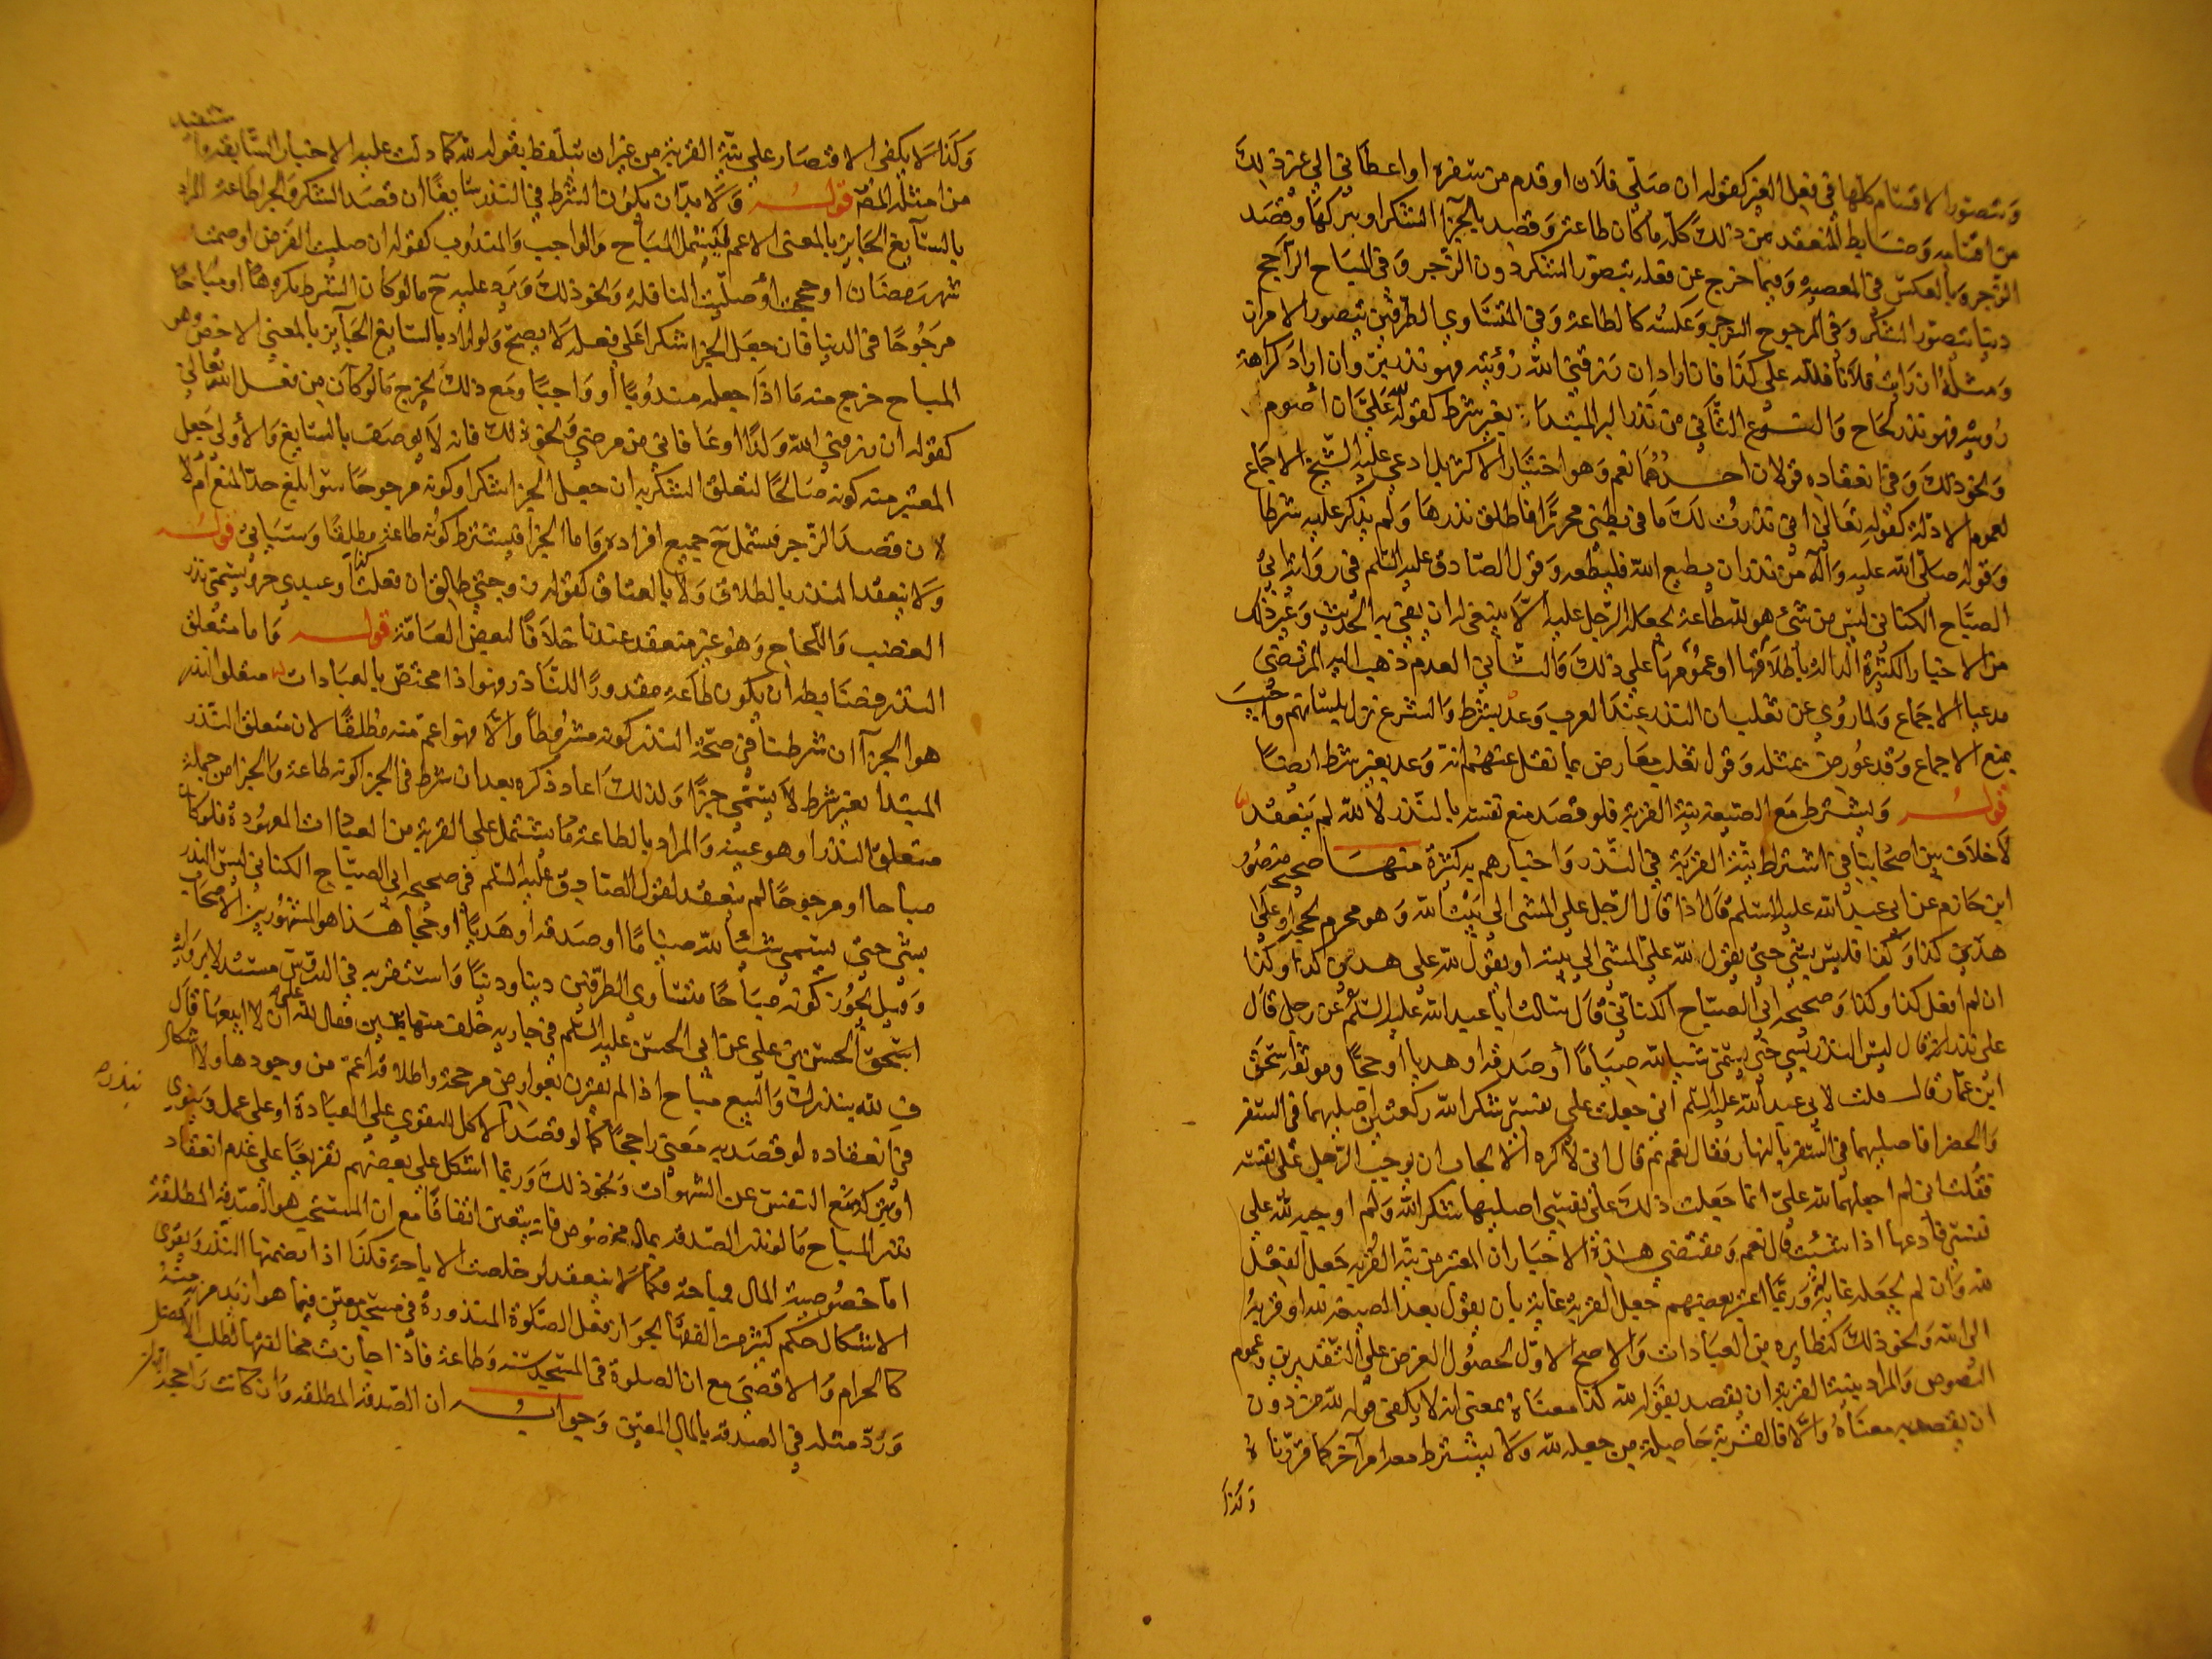 وَيتصوّر الاقسام كلها في فعل الغير كقوله ان صلّى فلان او قدم من سفره او اعطاني الى غير ذلك
من اقسامه وَضابط المنعقد من ذلك كلّه ما كان طاعة وَقصد بالجزا الشكر او تركها وقصد
الزّجر وَبالعكس في المعصية وَفيما خرج عن فعله يتصوّر الشكر دون الزّجر وَفي المباح الراجح
دينا يتصوّر الشكر وَفي المرجوح الزجر وَعكسه كالطاعة وَفي المتساوي الطرفين يتصور الامران
وَمثله ان رَايت فلانا فلله علي كذا فان اراد ان رزقني الله رؤيته فهو نذر برّ وان اراد كراهة
رؤيته فهو نذر لجاح وَالنوع الثاني من نذر البر المبتدا بغير شرط كقوله لله عَليّ ان أصوم
وَنحو ذلك وَفي انعقاده قولان احدهُمَا نعم وَهو اختيار الاكثر بل ادعى عليه الشّيخ الاجماع
لعموم الادلة كقوله تعالى اني نذرت لك ما في بطني محررًا فاطلق نذرها وَلم يذكر عليه شرطا
وَقوله صلى الله عليه وَآله من نذر ان يطيع الله فليطعه وَقول الصّادق عليه السّلم في رواية ابي
الصبّاح الكناني ليس من شيء هو لله طاعة يجعله الرّجل عليه الّا ينبغي له ان يفي به الحديث وَغير ذلك
من الاخبار الكثيرة الدالة باطلاقها او عمومها علي ذلك وَالثاني العدم ذهب اليه المرتضى
مدعيا الاجماع وَلما رُوي عن ثعلب ان النذر عند العرب وَعد بشرط وَالشرع نزل بلسانهم وَاجيب
بمنع الاجماع وَقد عُورض بمثله وَقول ثعلب معارض بما نقل عنهم انه وَعد بغير شرط ايضًا
قوله وَيشترط مَع الصيغة نية القربة فلو قصد منع نفسه بالنّذر لا لله لم يَنعقد
لا خلاف بين اصحابنا في اشتراط نيّة القربَة في النّذر وَاخبارهم به كثيرة منها صحيحة منصُور
ابن حَازم عن ابي عبد الله عليه السلم قال اذا قال الرجل علي المشي الي بيت الله وَهو محرم بحجة او علي
هدي كذا وَكذا فليس بشي حتى يقول لله عليّ المشي الي بيته او يقول لله علي هدي كذا وَكذا
ان لم افعل كذا وكذا وَصحيحة ابي الصبّاح الكناني قال سالت ابا عبد الله عليه السّلم عن رجل قال
علي نذر قال ليس النذر بشي حتى يسمّي شيا لله صيَامًا أو صَدقة او هديا او حجّا وموثقة اسحق
ابن عمّار قال قلت لابي عبد الله عليه السلم اني جعلت علي نفسي شكرا لله ركعتين اصليهما في السفر
وَالحضر افاصليهما في السّفر بالنهار فقال نعم ثم قال اني لاكره الايجاب ان يوجب الرّجل على نفسه
فقلت اني لم اجعلهما لله عليّ انما جَعلت ذلك على نفسي اصليها شكرا لله وَلم اوجبه لله علي
نفسي فادعها اذا شئت قال نعم وَمقتضي هذه الاخبار ان المعتبر من نيّة القُربة جَعل الفِعْل
لله وَان لم يجعله غاية له وَربما اعتبر بعضهم جعل القربة غاية بان يقول بعد الصيغة لله او قربة
الى الله وَنحو ذلك كنظايره من العبَادات وَالاصح الاول لحصُول الغرض على التّقديرين وَعموم
النصُوص وَالمراد بنية القربة ان يقصد بقوله لله كذا معناه بمعنى انه لا يكفي قوله لله من دون
ان يقصد به معنَاهُ وَالّا فالقربة حَاصلة من جعله لله وَلا يشترط معه امر آخر كما قرّرناه
وَكذا
وَكَذَا لَا يكفي الاقتصَار علي نيّة القربة من غير ان يتلفظ بقوله لله كما دلت عليه الاخبار السّابقة وما
يستفيد
من امثلة المصّ قولـــه وَلَا بدّ ان يكون الشرط في النذر سَايغًا ان قصد الشكر وَالجزا طاعة المراد
بالسّايغ الجَايز بالمعنى الاعم ليشمل المبَاح وَالواجب وَالمندُوب كقوله ان صليت الفرض او صمت
شهر رَمضَان او حججت أو صليت النافلة وَنحو ذلك وَيرد عليه ح ما لو كان الشرط مكروهًا او مُباحًا
مرجُوحًا في الدنيا فان جعَل الجزا شكرا عَلى فعله لا يصحّ وَلو اراد بالسّايغ الجَآيز بالمعني الاخص وَهو
المباح خرج منه مَا اذَا جعله مندُوبًا أو وَاجبًا وَمَع ذلك يخرج مَا لو كان من فعل الله تعالى
كقوله ان رزقني الله وَلدًا او عَافاني من مرضي وَنحو ذلك فانه لا يوصَف بالسّايغ وَالأولي جَعل
المعتبر منه كونه صَالحًا لتعلق الشكر به ان جعل الجزا شكرا وَكونه مرجوحًا سوا بلغ حدّ المنع أم لا
ان قصدَ الزّجر فيشمل ح جميع افراده وَاما الجزا فيشترط كونه طاعة مطلقًا وَسيَاتي قولـــه
وَلا ينعقد النذر بالطلاق وَلا بالعتاق كقوله زوجتي طالق ان فعلت كذا او عبدي حر وَيسمّى نذر
الغضب وَاللجاج وَهُو غير منعقد عندنا خلافًا لبعض العَامّة قولـــه وَاما متعلق
النذر فضَابطه ان يكون طَاعة مقدورًا للنّاذر فهو اذا مختصّ بالعبَادات متعلق النذر
هو الجزآ ان شرطنا في صحّة النذر كونه مشروطًا وَالّا فهو اعمّ منه مُطلقًا لان متعلق النّذر
المبتدا بغير شرط لا يسَمّي جزًا وَلذلك اعاد ذكره بعد ان شرط في الجزا كونه طاعة وَالجزا من جملة
متعلق النذر او هو عينه وَالمراد بالطاعة مُا يشتمل علي القربة من العبَادات المعهُودة فلو كان
مباحا او مرجوحًا لم ينعقد لقول الصّادق عليه السّلم في صحيحة ابي الصبّاح الكناني ليس النذر
بشي حتى يسمي شيئا لله صيامًا او صَدقة او هَديًا او حجا هَذا هو المشهُور بين الاصحَاب
وَقيل يجُوز كونه مبَاحًا متسَاوي الطرفين دينا ودنيًا وَاستقربه في الدّروس مستند لا برواية
الحسن بن علي عن ابي الحسن عليه السّلم في جارية حلف منها بيمين فقال لله علي ان لا ابيعها قَال
فِ لله بنذرك وَالبيع مبَاح اذا لم يقترن بعوارض مرجحة واطلاقه اعمّ من وجودها ولا اشكال
نذره
في انعقاده لو قصَد به مَعنى راجحًا كما لو قصَد بالاكل التقوي على العبَادة او على عمل دنيوي
او بتركه منع النفس عن الشهوات وَنحو ذلك وَربّما اشكل علي بعضهم تفريعًا علي عدم انعقاد
نذر المباح مَا لو نذر الصّدقة بمال مخصُوص فانه يتعين اتفاقًا مع ان المستحب هو الصّدقة المطلقة
امَا خصُوصية المال فمباحة فكما لا ينعقد لو خلصت الاباحة فكذَا اذا تضمنها النّذر وَيقوى
الاشكال حكم كثير من الفقهَا بجوَاز فعل الصَّلوة المنذورة في مسجد معين فيما هو ازيد مزية منه
كالحرام وَالاقصَى مع ان الصلوة في المسجد سنة وَطاعة فاذَا جازت مخالفتها لطلب الافضل
وَرَدّ مثله في الصدقة بالمال المعيّن وَجوابـــه ان الصّدقة المطلقة وَان كانت رَاجحة